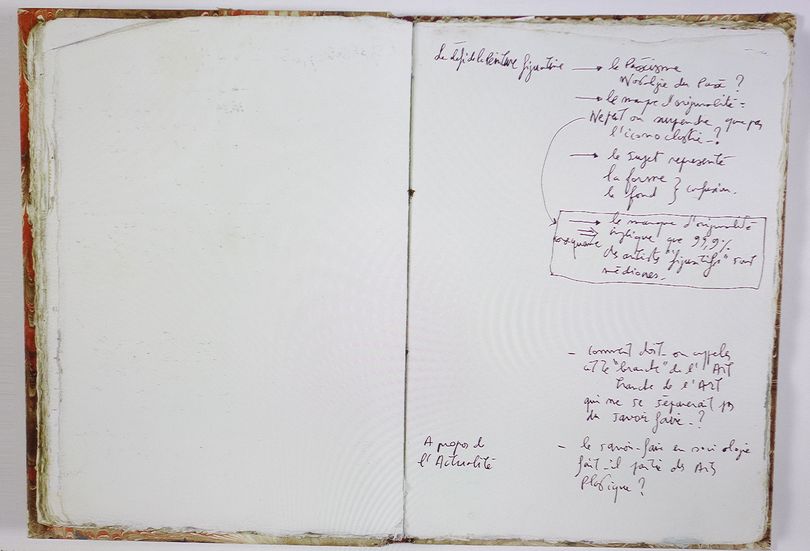 Le défi de la Peinture figurative
→ le Passéisme
Nostalgie du Passé ?
→ le manque d'originalité =
N'est-on surprendre que par
l'iconoclastie - ?
→ le sujet représenté
la forme
le fond } confusion.
→ le manque d'originalité
implique que 99,9%
des artistes "figuratifs" sont
médiocres.
- Comment doit-on appeler
cette "branche" de l'Art
branche de l'Art
qui ne se séparerait pas
du savoir faire - ?
A propos de
l'Actualité
- le savoir-faire en sociologie
fait-il partie des Arts
Plastique ?